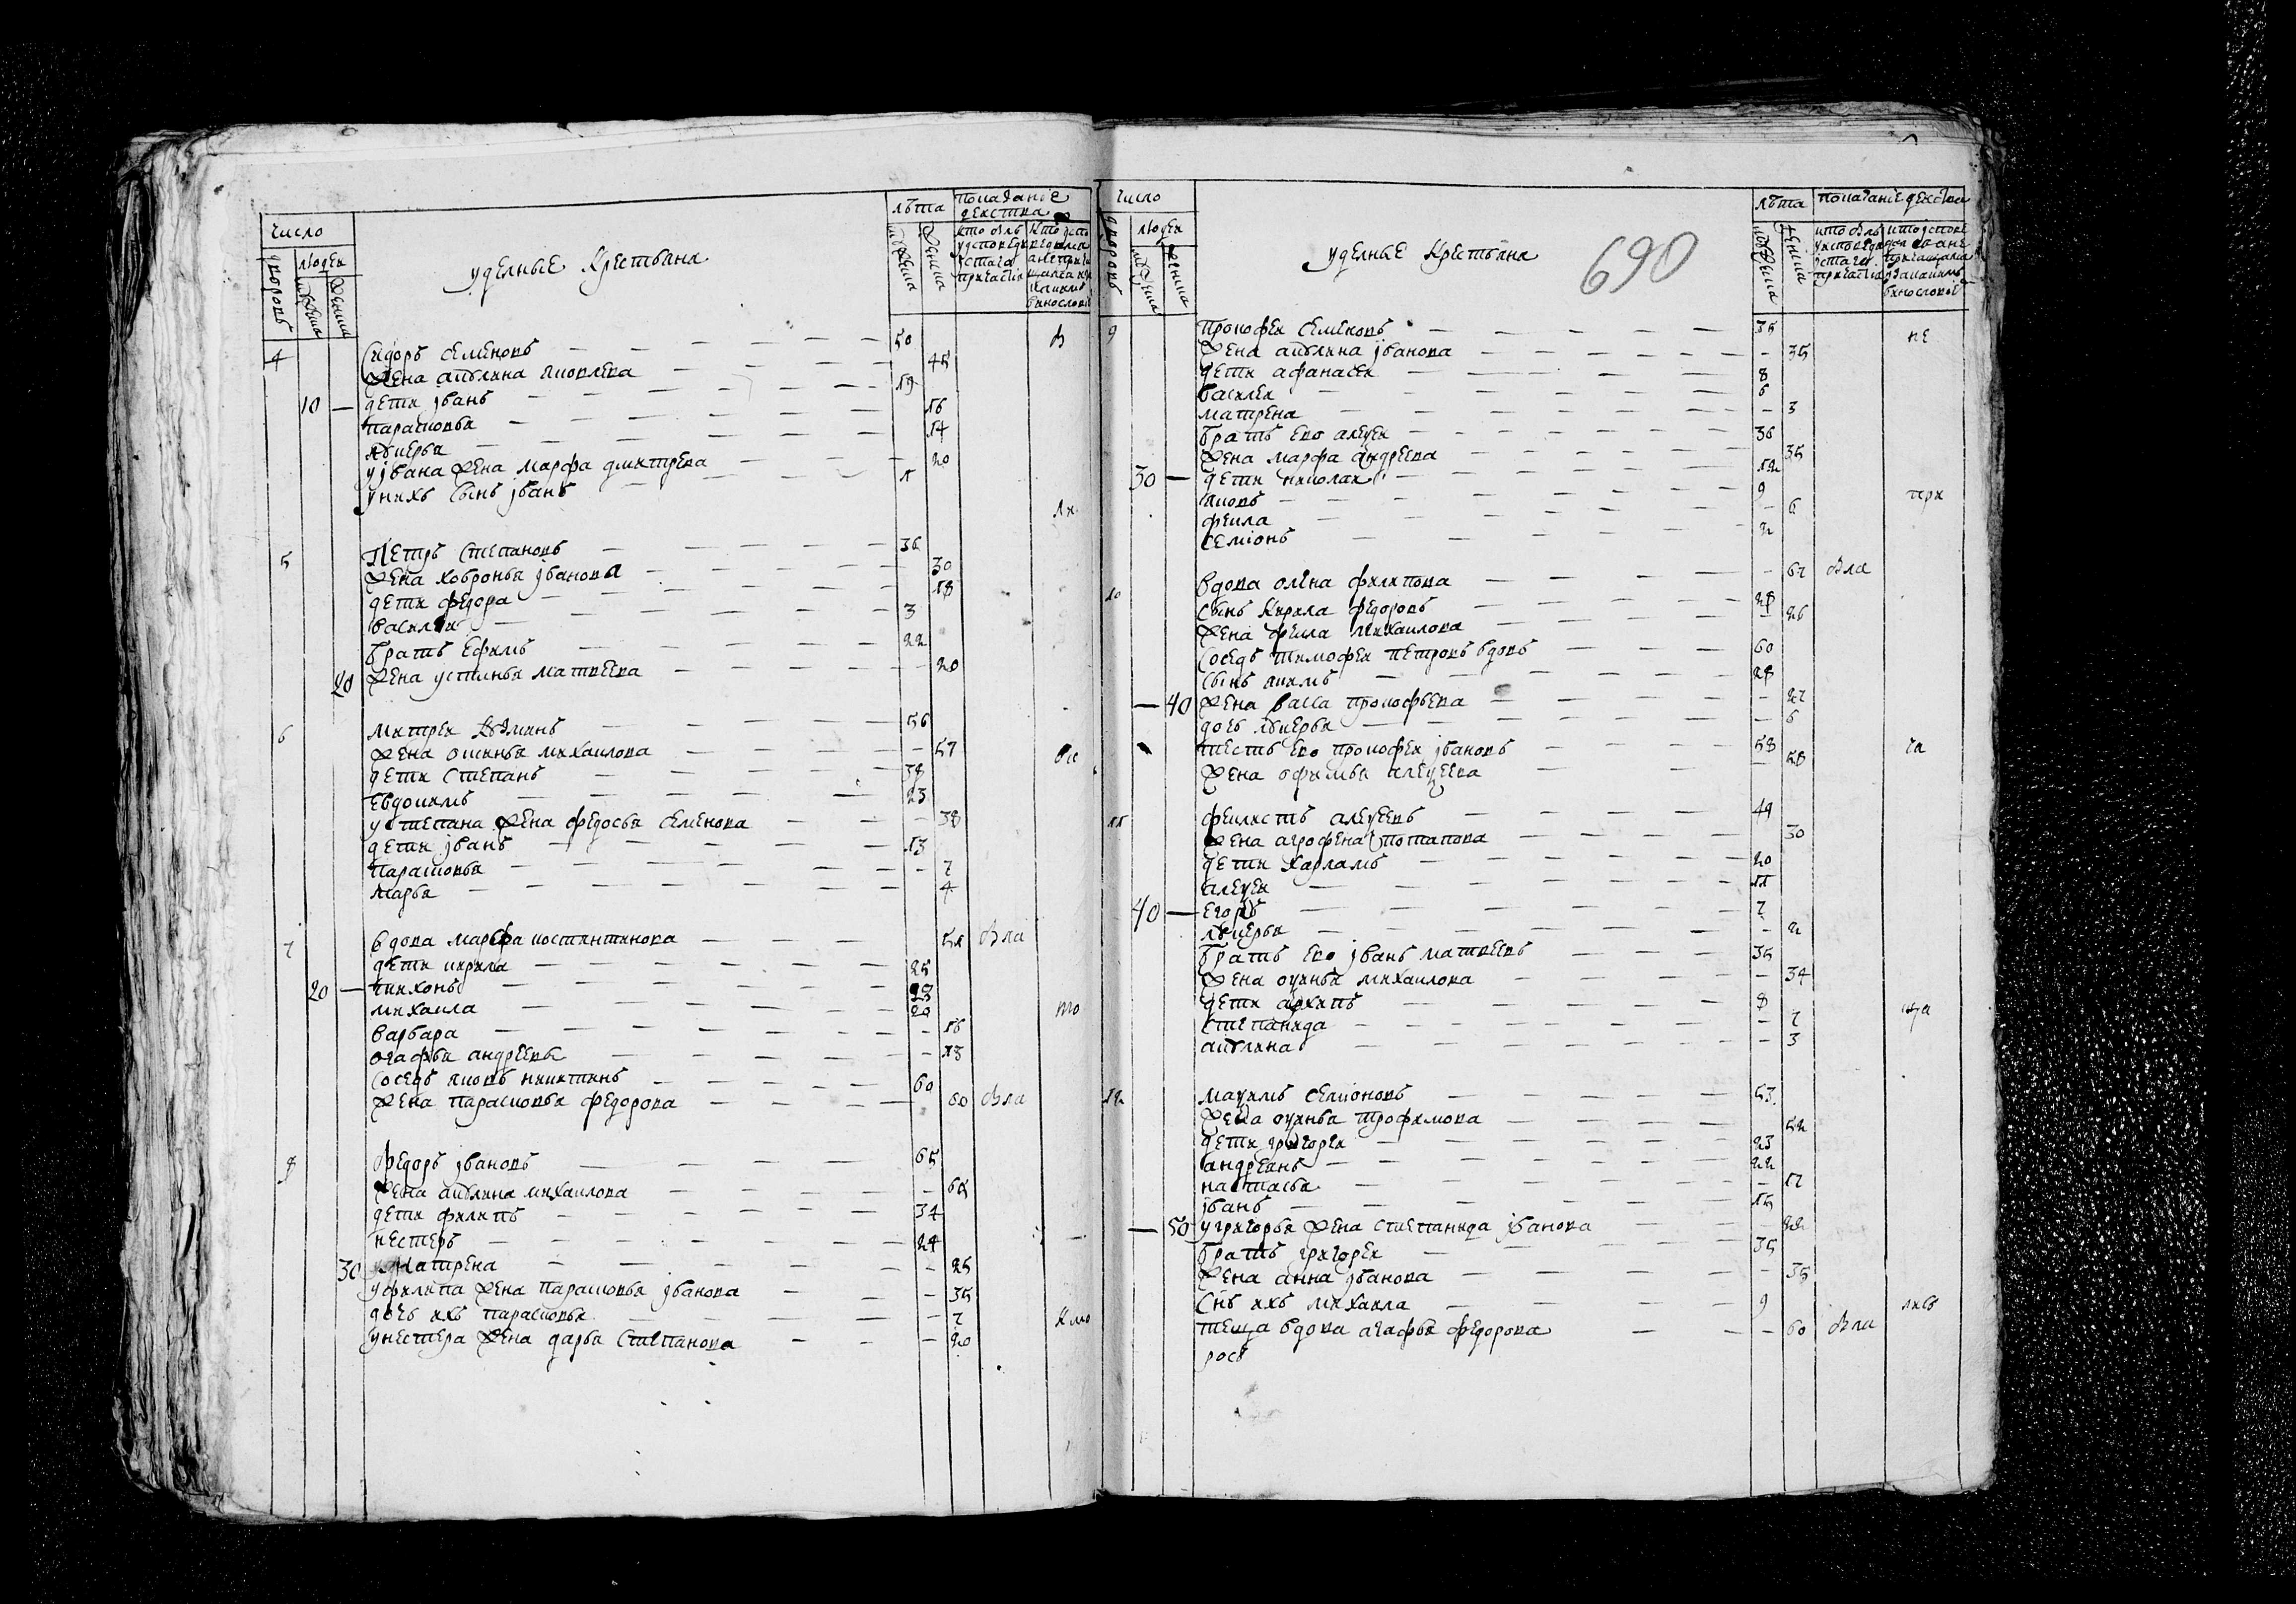 число
людей
дворовъ
мужеска
женска
удѣлные крестьяна
лѣта
мужеска
женска
показаніе действа
кто былъ у исповеди и святаго причастія
4 Сидоръ семеновъ 50
жена акулина яковлева 45
10 дети іванъ 19
парасковья 16
лукерья 14
у івана жена марфа дмитрева 20
у нихъ сынъ іванъ 1
5 Петръ степановъ 36
жена ховронья іванова 30
дети федора 18
василей 3
братъ ефимъ 22
20 жена устинья матвеева 20
6 митрей кузминъ 56
жена оксинья михаилова 57
дети степанъ 38
евдокимъ 23
у степана жена федосья семенова 38
дети іванъ 13
парасковья 7
марья 4
7 вдова марфа костянтинова 51 была
дети кирила 25
20 тихонъ 23
михаила 20
варвара 16
огафья андреевы 13
соседъ яковъ никитинъ 60
жена парасковья федорова 60 была
8 Федоръ івановъ 65
жена акулина михаилова 65
дети филипъ 34
нестеръ 24
30 матрена 25
у филипа жена парасковья іванова 35
дочь ихъ парасковья 7
у нестера жена дарья степанова 20
число
людей
дворовъ
мужеска
женска
удѣлные крестьяна
690
лѣта
мужеска
женска
показаніе действа
9 прокофей семеновъ 35 не
жена акулина іванова 35
дети афанасей 8
василей 6
матрена 3
братъ ево алексей 36
жена марфа андреева 35
30 дети николай 12
яковъ 9 при
фекла 6
семіонъ 2
10 вдова олена филипова 67 была
сынъ кирила федоровъ 28
жена фекла михаилова 26
соседъ тимофей петровъ вдовъ 60
сынъ якимъ 28
40 жена васса прокофьева 27
дочь лукерья 6
тесть ево прокофей івановъ 58 ча
жена офимья алексеева 58
11 феликстъ алексеевъ 49
жена агрофена потапова 30
дети харламъ 20
алексей 11
40 егоръ 7
лукерья 2
братъ ево іванъ матвеевъ 35
жена оксинья михаилова 34
дети архипъ 8
степанида 7
акулина 3
12 максимъ семіоновъ 53
жена оксинья трофимова 52
дети григорей 23
андреянъ 22
настасья 17
іванъ 15
50 у григорья жена степанида іванова 22
братъ григорей 35
жена анна іванова 35
снъ ихъ михаила 9
теща вдова агафья федорова 60 была